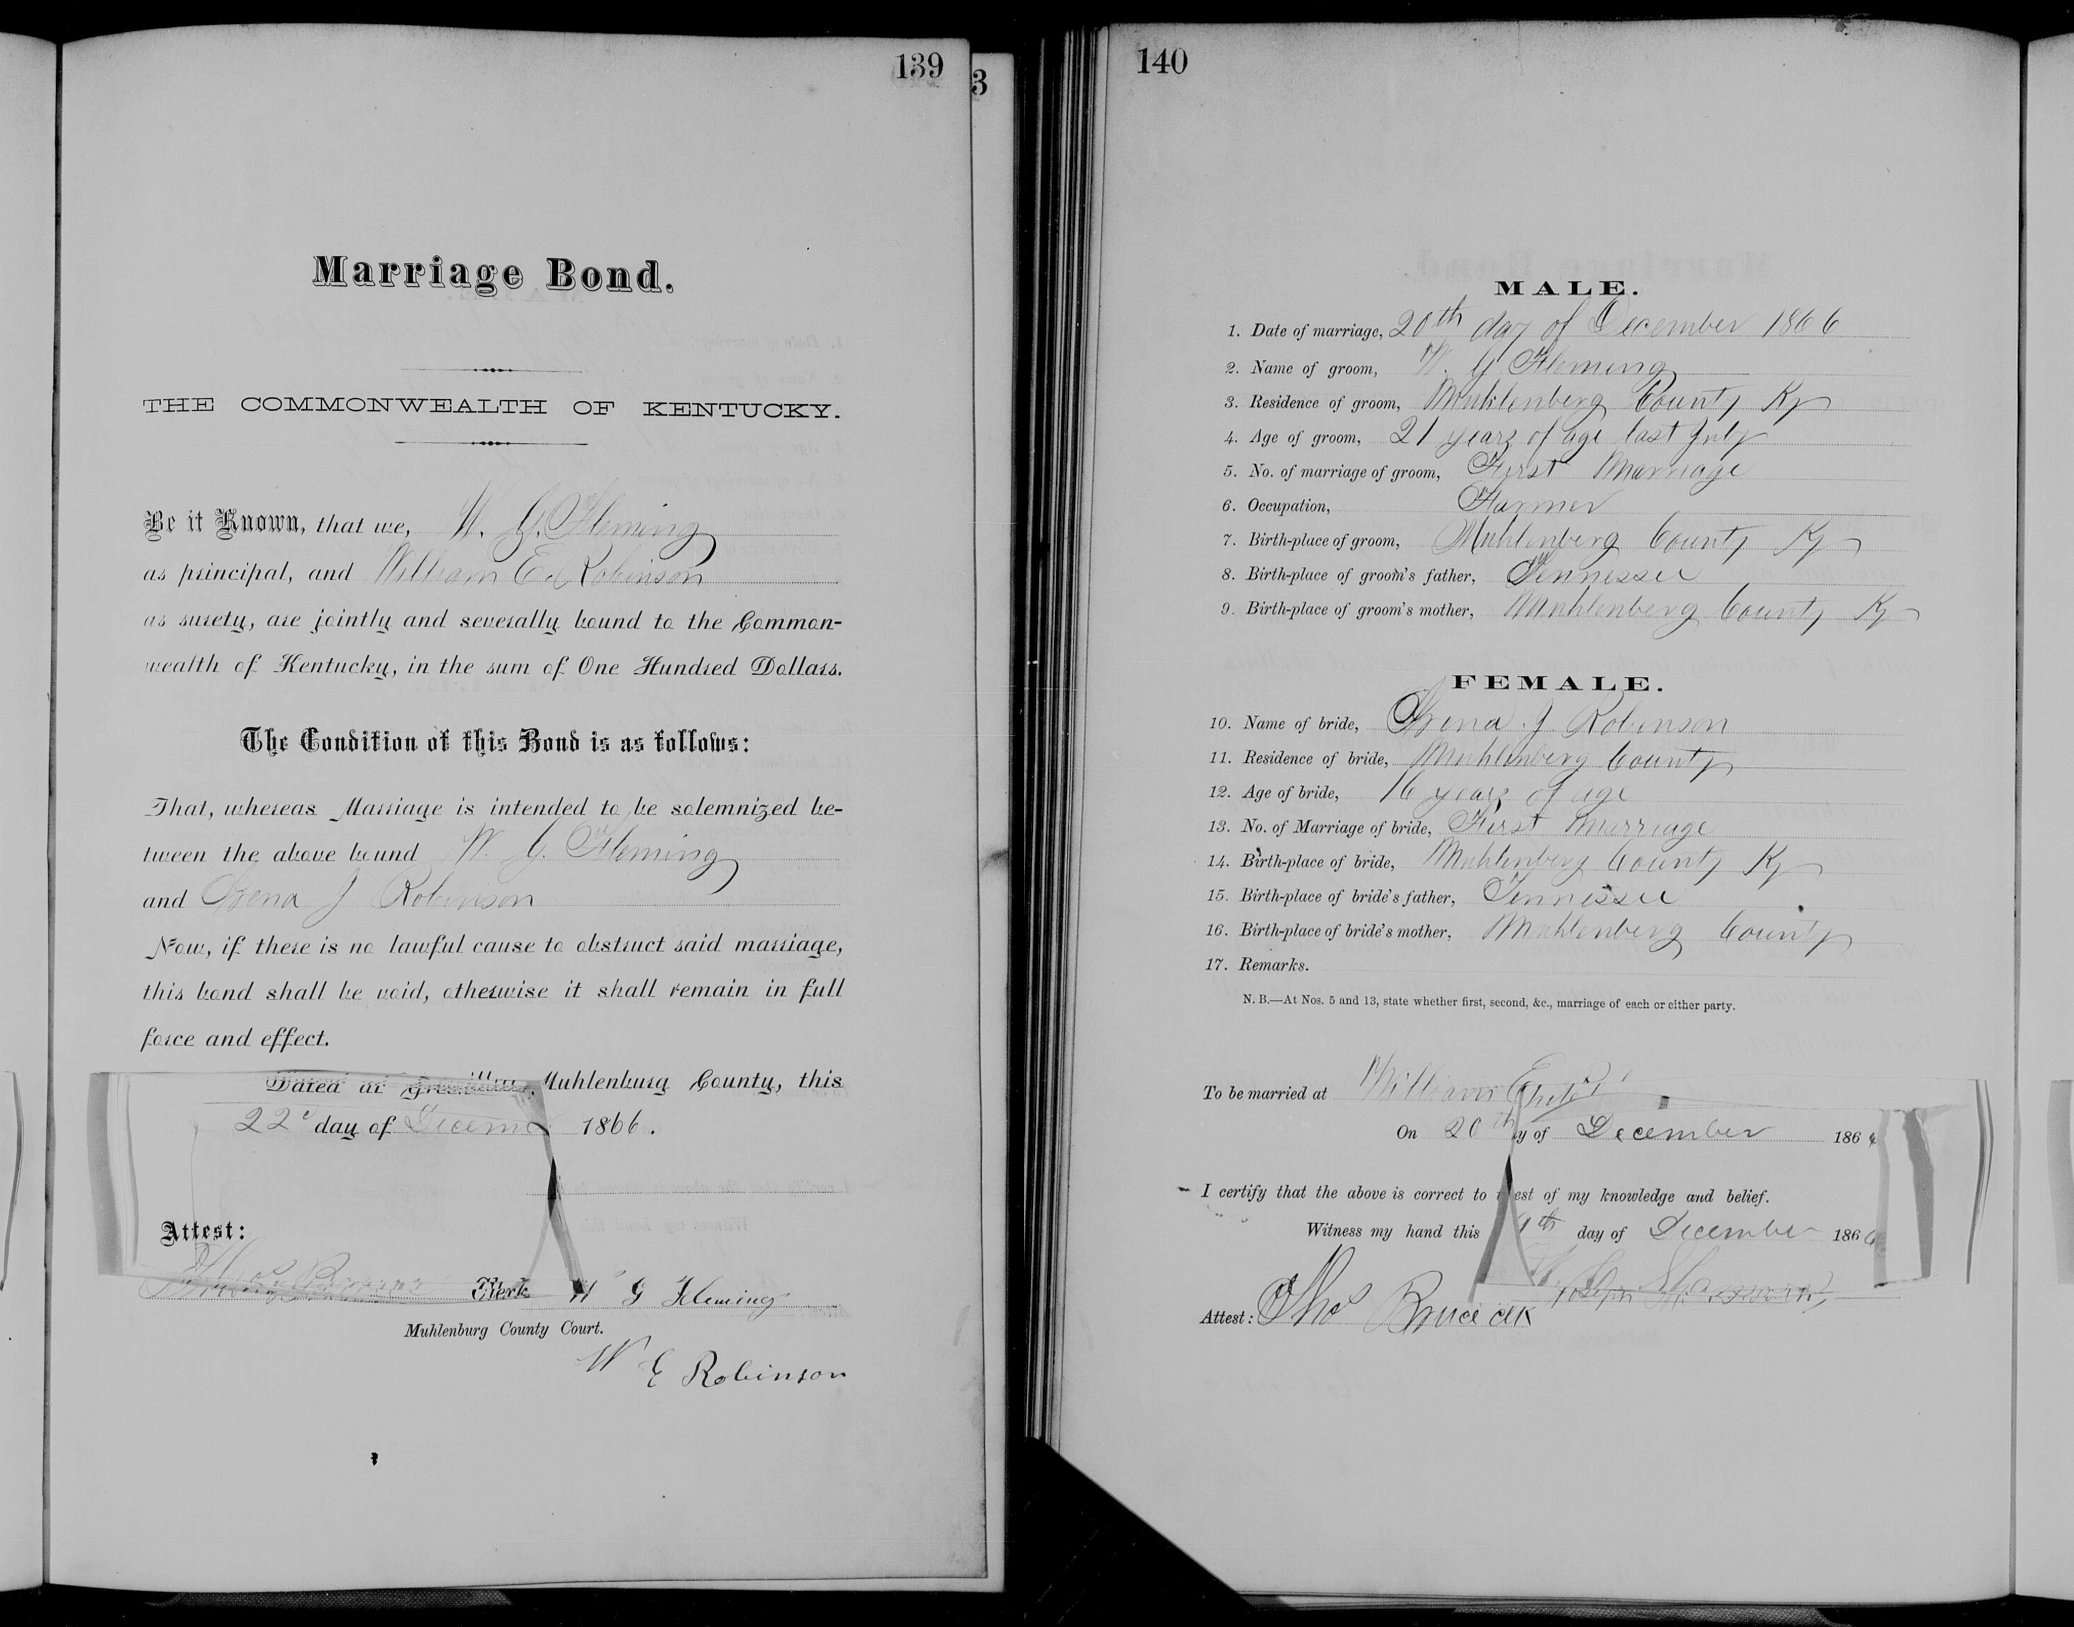 139
3
Marriage Bond.
THE COMMONWEALTH OF KENTUCKY.
Be it Known, that we, W. G. Fleming
as principal, and William E. Robinson
as surety, are jointly and severally bound to the Common-
wealth of Kentucky, in the sum of One Hundred Dollars.
The Condition of this Bond is as follows:
That, whereas Marriage is intended to be solemnized be-
tween the above bound W. G. Fleming
and Irena J Robinson
Now, if there is no lawful cause to obstruct said marriage,
this bond shall be void, otherwise it shall remain in full
force and effect.
Dated at Muhlenburg County, this
day of 1866.
Attest:
Clerk W G Fleming
Muhlenburg County Court.
W E Robinson
140
MALE.
1. Date of marriage, 20th day of December 1866
2. Name of groom, W. G Fleming
3. Residence of groom, Muhlenberg County Ky
4. Age of groom, 21 years of age last July
5. No. of marriage of groom, First Marriage
6. Occupation, Farmer
7. Birth-place of groom, Muhlenberg County Ky
8. Birth-place of groom's father, Tennessee
9. Birth-place of groom's mother, Muhlenberg County Ky
FEMALE.
10. Name of bride, Irena J Robinson
11. Residence of bride, Muhlenberg County
12. Age of bride, 16 years of age
13. No. of Marriage of bride, First Marriage
14. Birth-place of bride, Muhlenberg County Ky
15. Birth-place of bride's father, Tennessee
16. Birth-place of bride's mother, Muhlenberg County
17. Remarks.
N. B.—At Nos. 5 and 13, state whether first, second, &c., marriage of each or either party.
To be married at William
On 20th of December 186
I certify that the above is correct to est of my knowledge and belief.
Witness my hand this day of December 1866
Attest: Thos Bruce clk